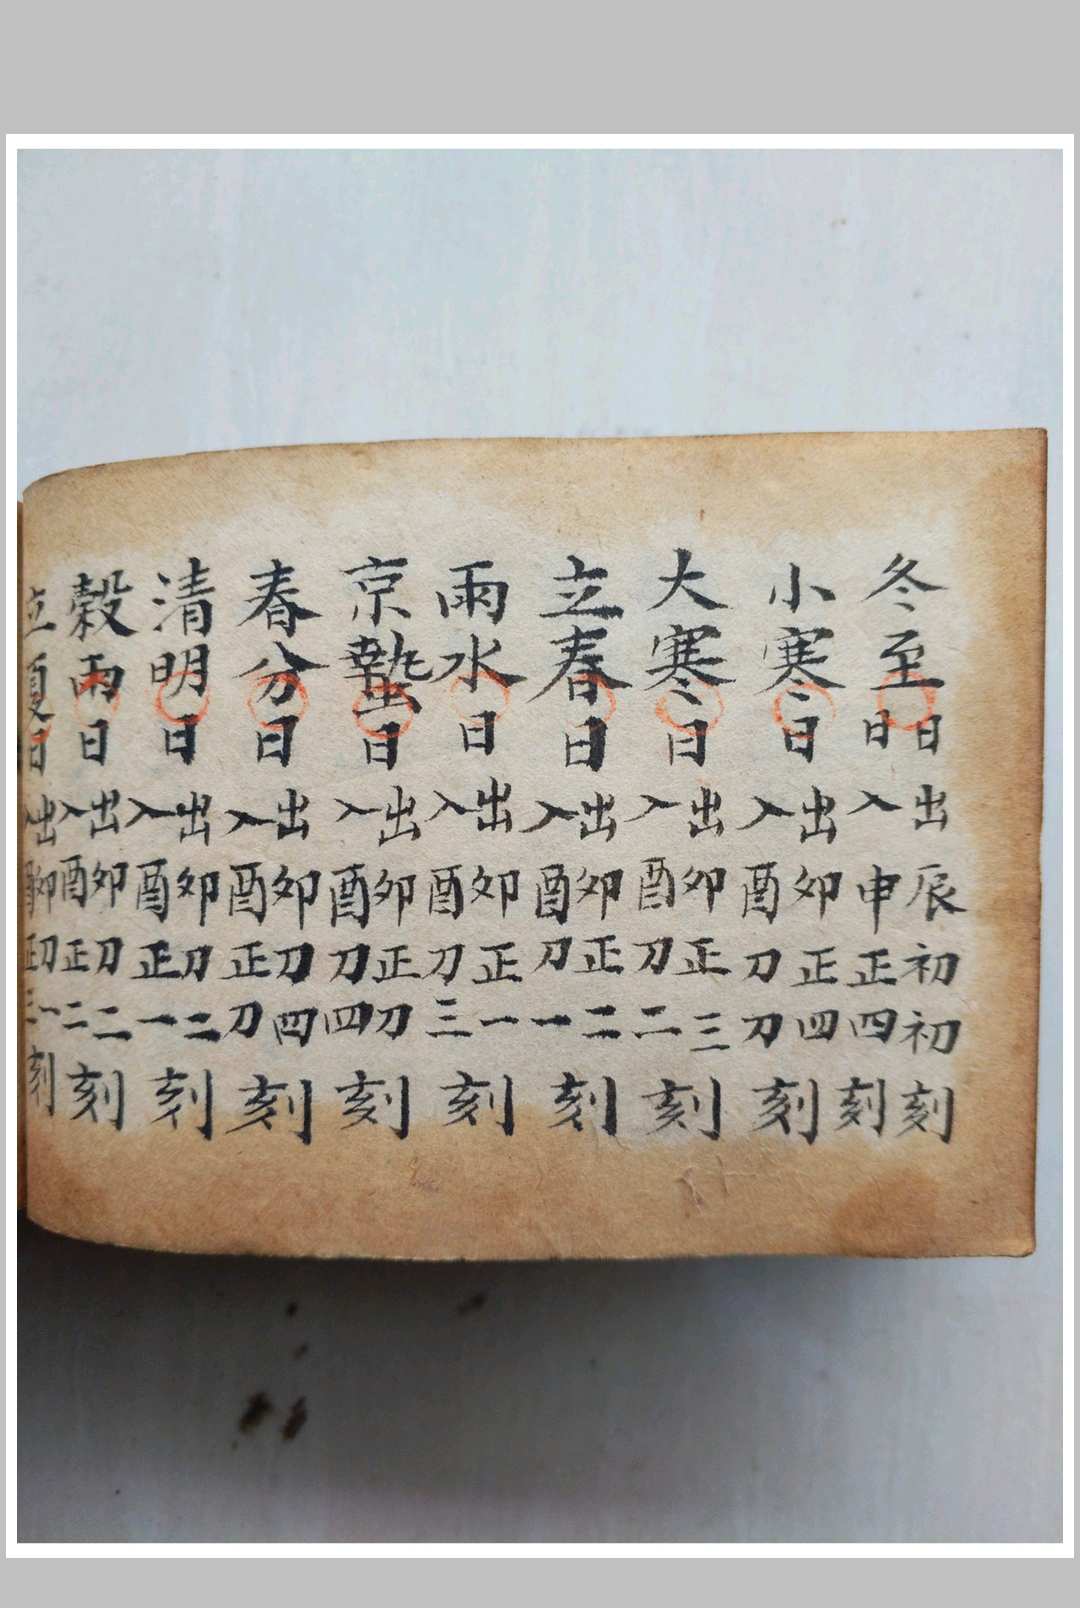 冬至日出辰初初刻
日入申正四刻
小寒日出卯正四入酉刀刀刻
大寒日出卯正三入酉刀二刻
立春日出卯正二入酉刀一刻
雨水日出卯正一入酉刀三刻
京蟄日出卯正刀入酉刀四刻
春分日出卯刀四入酉正刀刻
清明日出卯刀二入酉正一刻
穀雨日出卯刀二入酉正二刻
立夏日出卯刀一入酉正三刻